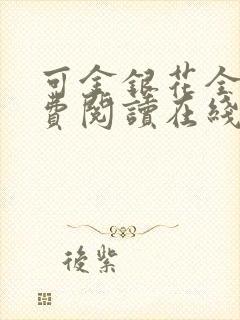 可金銀花全
費閱讀在綫
後紫